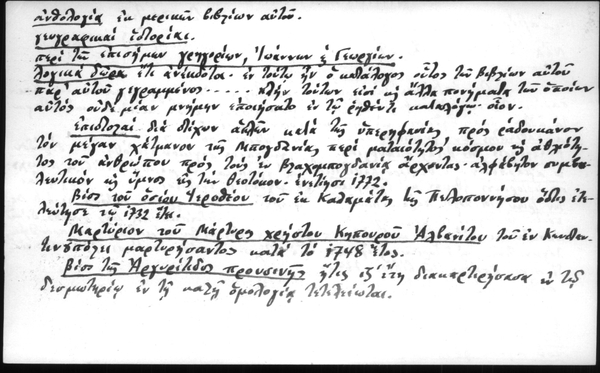 ἀνθολογία ἐκ μερικῶν βιβλίων αὐτοῦ.
γεωγραφικαὶ ἱστορίαι.
περὶ τῶν ἐπισήμων γρηγορίων, Ἰωάννων ἢ Γεωργίων.
Λογικὰ δῶρα ἔτι ἀνέκδοτα. ἐν τούτῳ ἦν ὁ κατάλογος οὗτος τῶν βιβλίων αὐτοῦ
παρ' αὐτοῦ γεγραμμένος...... πλὴν τούτων εἰσὶ καὶ ἄλλα πονήματα τῶν ὁποίων
αὐτὸς οὐδεμίαν μνήμην ἐποιήσατο ἐν τῷ ῥηθέντι καταλόγῳ. οἷον.
Ἐπιστολαὶ διὰ στίχων ἁπλῶν κατὰ τῆς ὑπερηφανίας πρὸς ῥάδουκάνον
τὸν μέγαν χάτμανον τῆς Μπογδανίας περὶ ματαιότητος κόσμου καὶ ἀθλιότη-
τος τοῦ ἀνθρώπου πρὸς τοὺς ἐν Βλαχομπογδανίᾳ ἄρχοντας. ἀλφάβητον συμβου-
λευτικὸν καὶ ὕμνος εἰς τὴν Θεοτόκον. ἐν ἔτησι 1772.
Βίος τοῦ ὁσίου Ἱεροθέου τοῦ ἐκ Καλαμάτας τῆς Πελοπονήσου ὅστις ἐτε-
λεύτησε τῷ 1732 ἔτει.
Μαρτύριον τοῦ Μάρτυρος χρήστου Κηπουροῦ Ἀλβανίτου τοῦ ἐν Κωνσταν-
τινουπόλει μαρτυρήσαντος κατὰ τὸ 1748 ἔτος.
Βίος τῆς Ἀργυρίτιδος προυσινῆς ἥτις ἓξ ἔτη διακαρτερήσασα ἐν τῷ
δεσμωτηρίῳ ἐν τῇ καλῇ ὁμολογίᾳ τετελείωται.